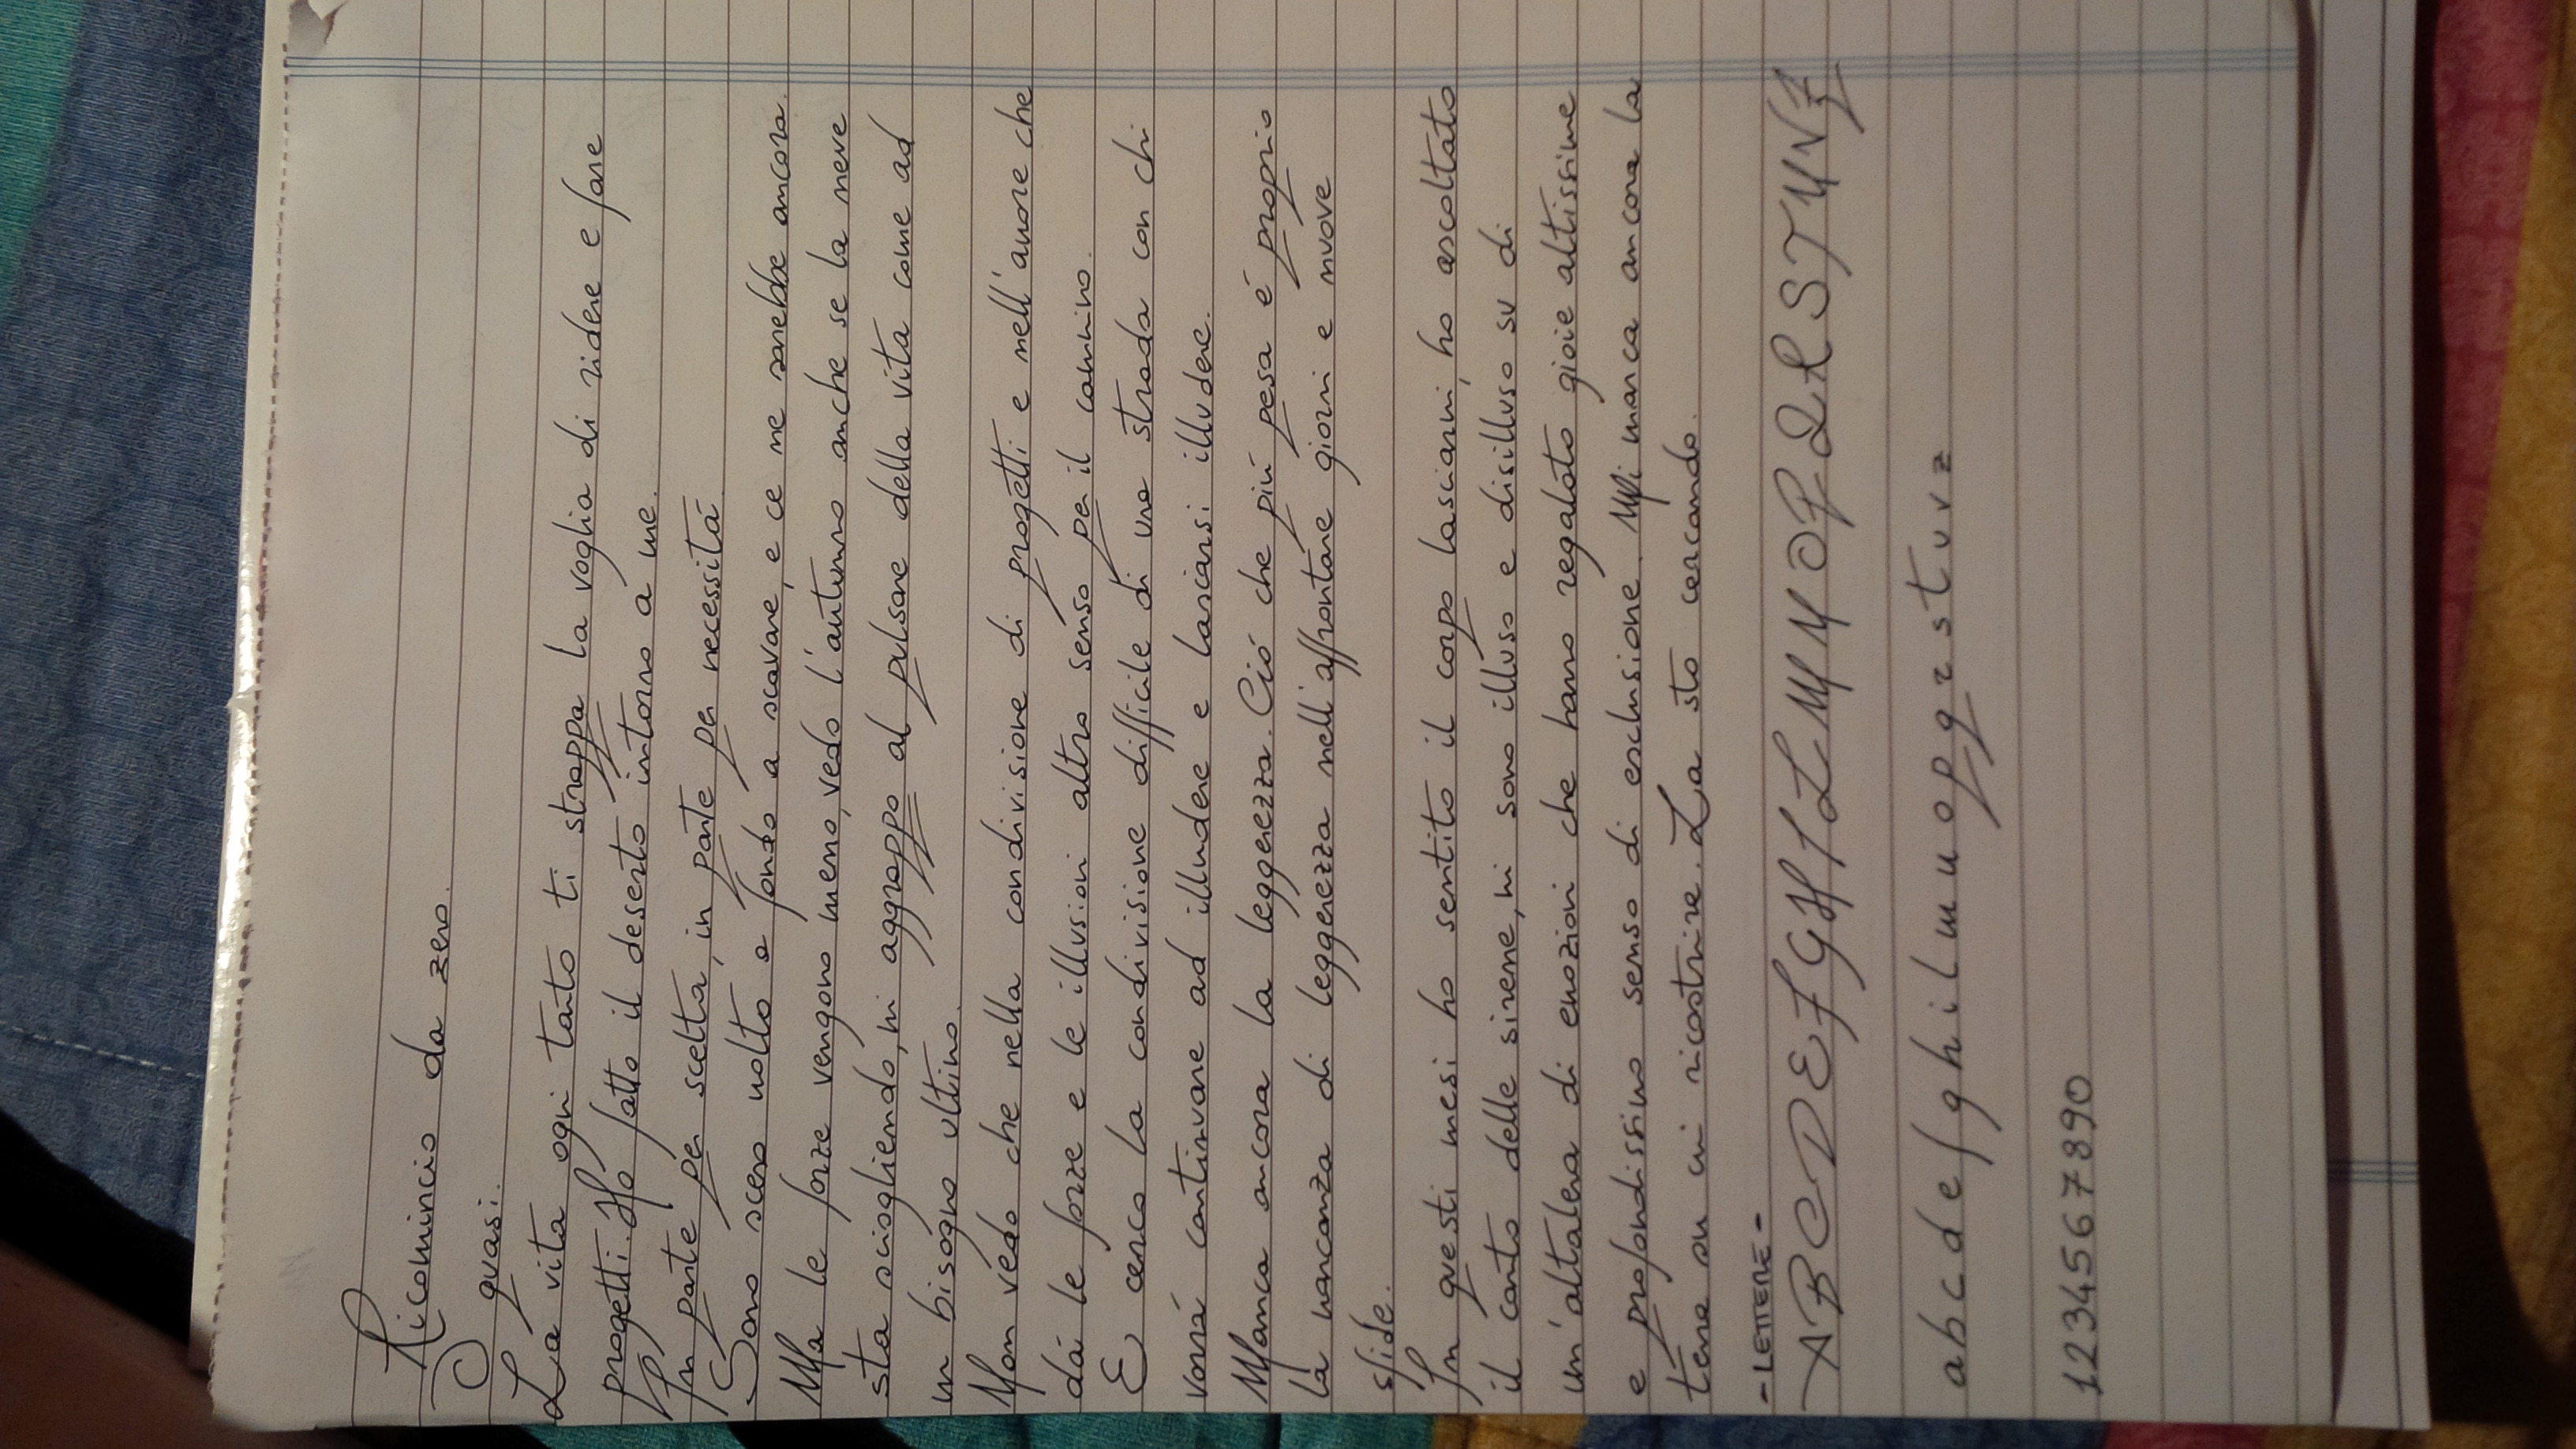 Ricomincio da zero.
O quasi.
La vita ogni tanto ti strappa la voglia di ridere e fare
progetti. Ho fatto il deserto intorno a me.
In parte per scelta, in parte per necessitá.
Sono sceso molto a fondo a scavare, e ce ne sarebbe ancora.
Ma le forze vengono meno, vedo l'autunno anche se la neve
sta sciogliendo, mi aggrappo al pulsare della vita come ad
un bisogno ultimo.
Non vedo che nella condivisione di progetti e nell'amore che
dái le forze e le illusioni altro senso per il cammino.
E cerco la condivisione difficile di una strada con chi
vorrá continuare ad illudere e lasciarsi illudere.
Manca ancora la leggerezza. Ció che piú pesa é proprio
la mancanza di leggerezza nell'affrontare giorni e nuove
sfide.
In questi mesi ho sentito il corpo lasciarmi, ho ascoltato
il canto delle sirene, mi sono illuso e disilluso su di
un'altalena di emozioni che hanno regalato gioie altissime
e profondissimo senso di esclusione. Mi manca ancora la
terra su cui ricostruire. La sto cercando.
- LETTERE -
A B C D E F G H I L M N O P Q R S T U V Z
a b c d e f g h i l m n o p q r s t u v z
1234567890